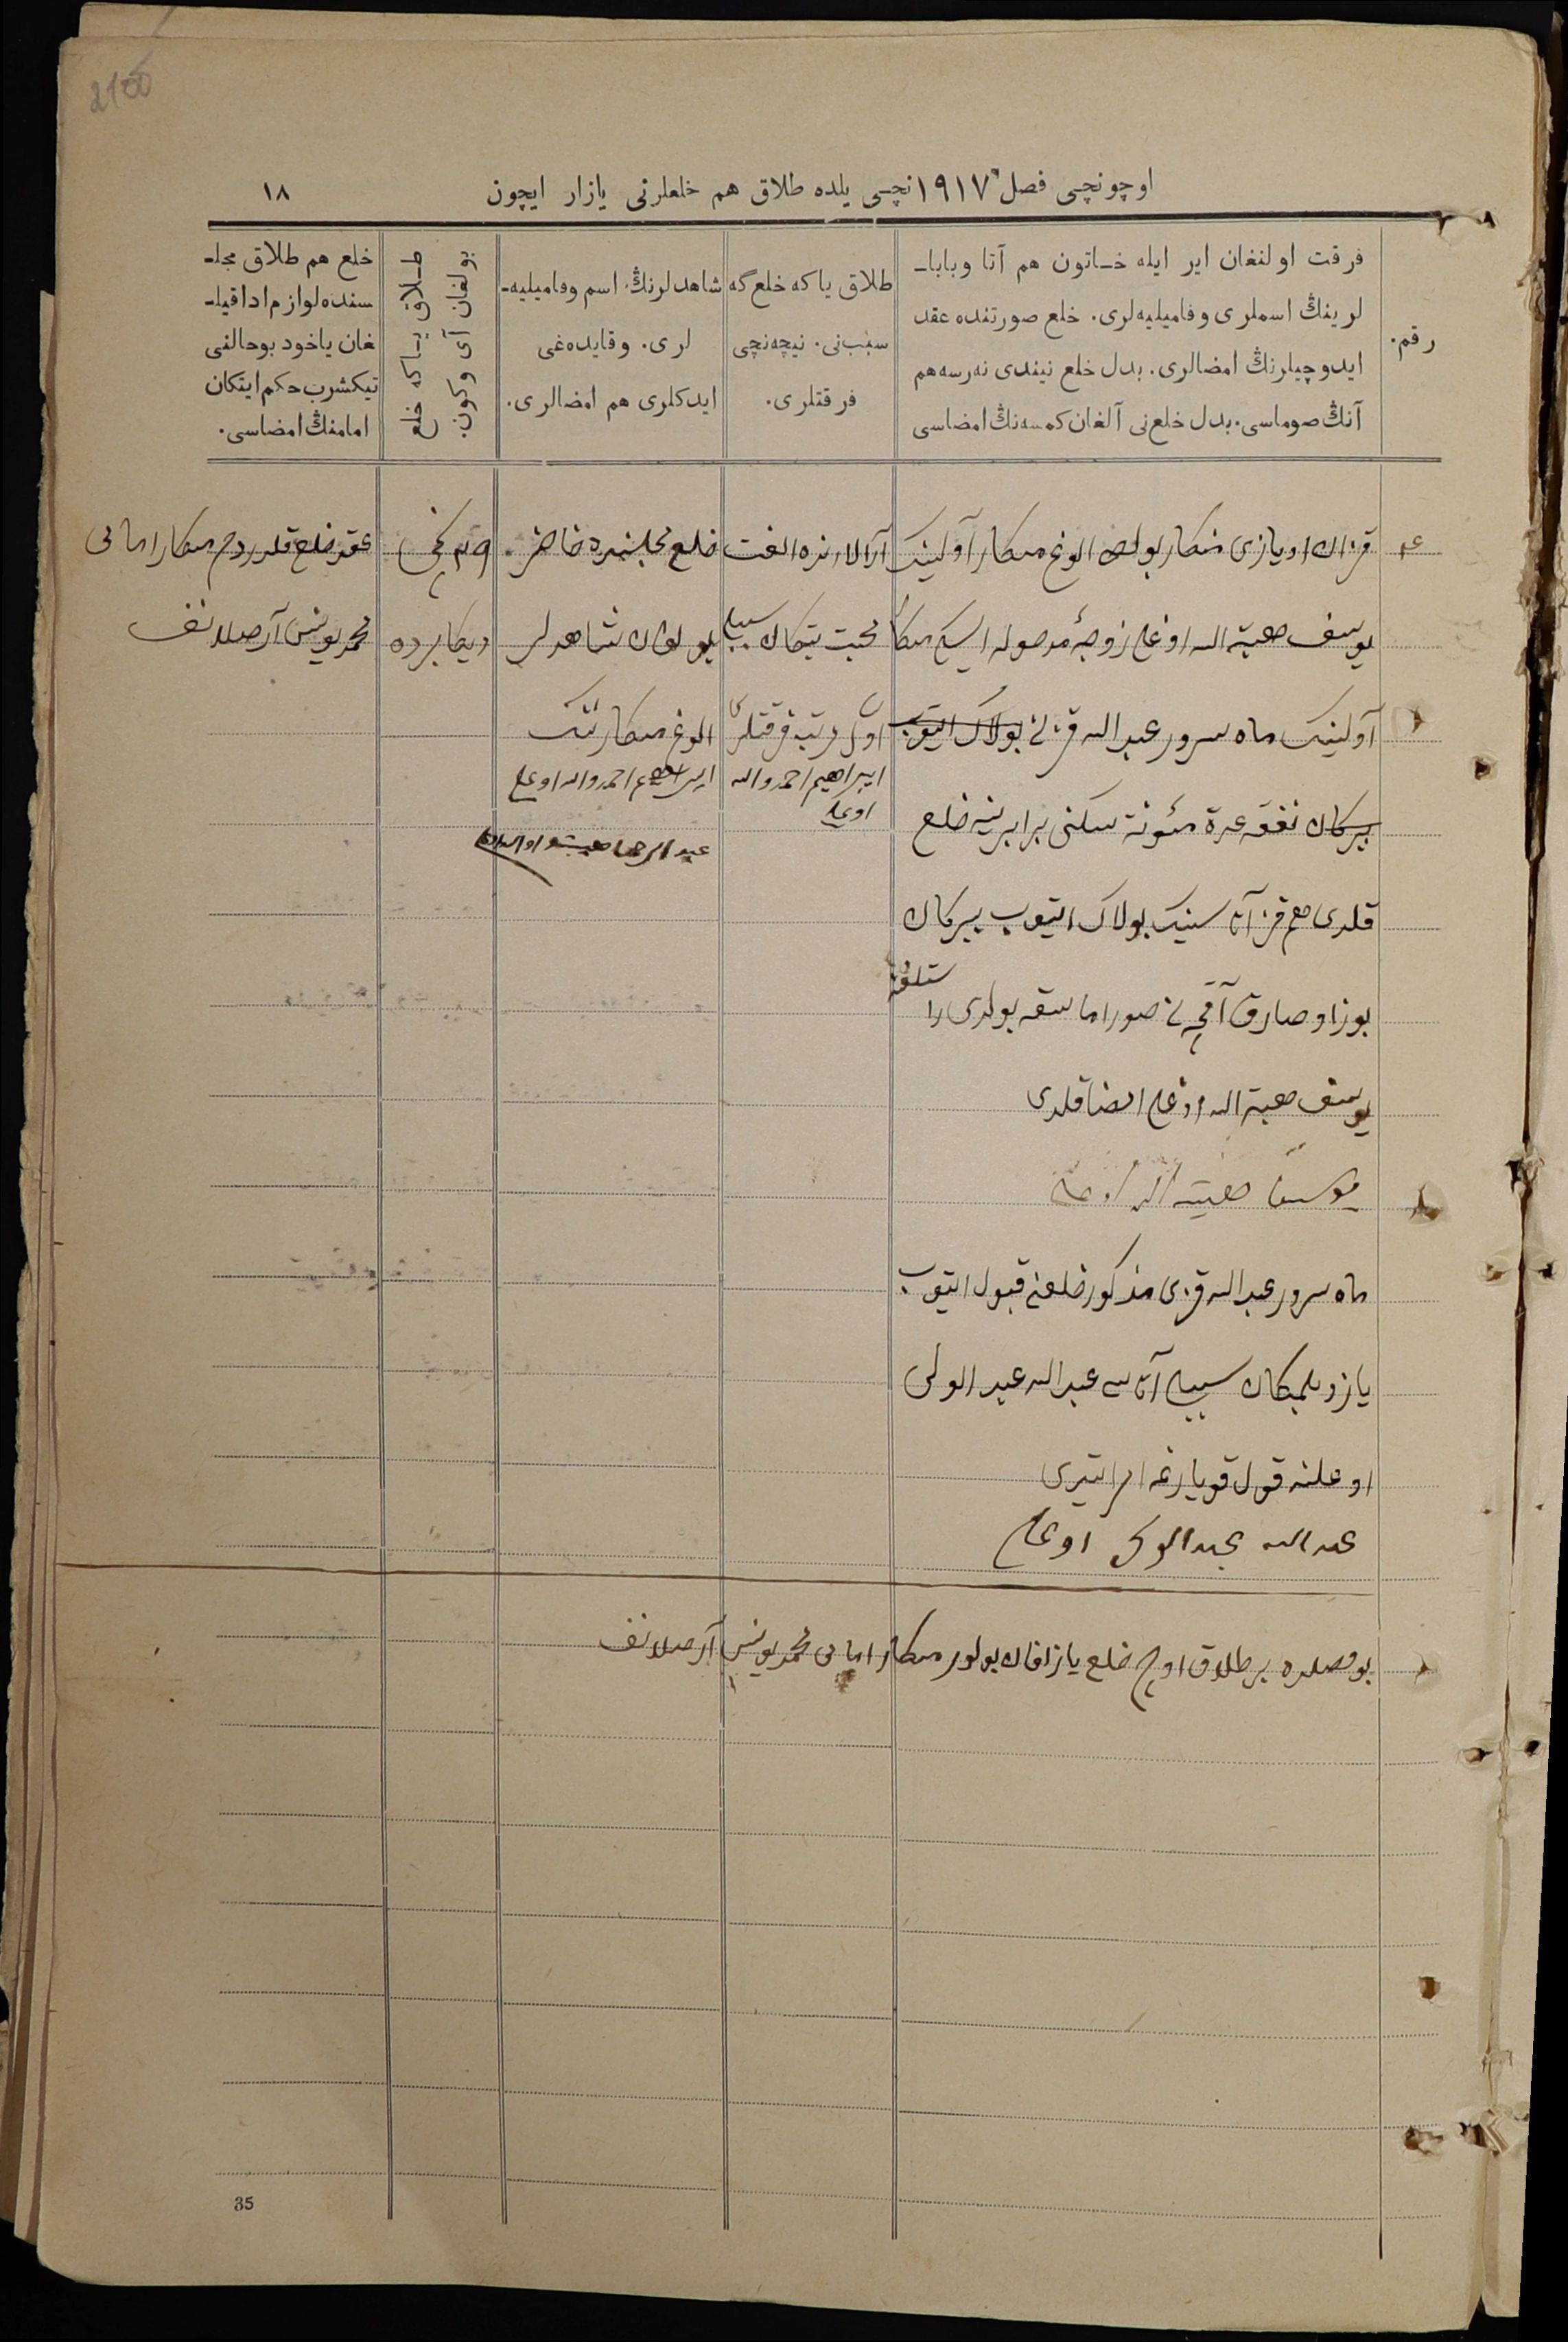 2100
اوچونچی فصل ١٩١٧ نچی یلده طلاق هم خلعلرنی یازار ایچون
١٨
رقم.
فرقت اولنغان ایر ایله خـاتون هم آتا وبابا‌ـ
لرینڭ اسملری وفامیلیه‌لری. خلع صورتنده عقد
ایدوچیلرنڭ امضالری. بدل خلع نیندی نه‌رسه هم
آنڭ صوماسی. بدل خلع‌نی آلغان کمسه‌نڭ امضاسی
طلاق یا که خلع گه
سبب‌نی. نیچه‌نچی
فرقتلری.
شاهدلرنڭ اسم وفامیلیه‌ـ
لری. وقایده‌غی
ایدکلری هم امضالری.
طـلاق یـا که خلع
بولغان آی وکون.
خلع هم طلاق مجلـ
سنده لوازم ادا قیلـ
غان یاخود بو حالنی
تیکشرب حکم ایتکان
امامنڭ امضاسی.
اویازی منکار بولص الوغ منکار آولینیک
یوسف هبة الله اوغلی زوجهٔ مدخوله
آولینیک ماه سرور عبد الله قزنی بولاک ایتوب
بیرکان نفقه عدة مئونة سکنی برابرینه خلع
قلدی هم قز آتاسینیک بولاک ایتوب بیرکان
بوزاو صارق آقچه نی
یوسف هبة الله اوغلی امضا قلدی
یوسف هبة الله اوغلی
ماه سرور عبد الله قزی مذکور خلعنی قبول ایتوب
یازو بلمکان سببلی آتاسی عبد الله عبد الولی
اوغلنه قول قویارغه امر ایتدی
عبد الله عبد الولی اوغلی
آرالارنده الفت
محبت بتکان سببلی
اول مرتبه فرقتلری
ابراهیم احمد والله
اوغلی
خلع مجلسنده حاضر
بولغان شاهدلر
الوغ منکارننک
ابراهیم احمد والله اوغلی
دیکابرده
عقد خلع قلدردم منکار امامی
محمد یونس آرصلانف
بو فصلده بر طلاق اوچ خلع یازلغان بولور منکار امامی محمد یونس آرصلانف
35